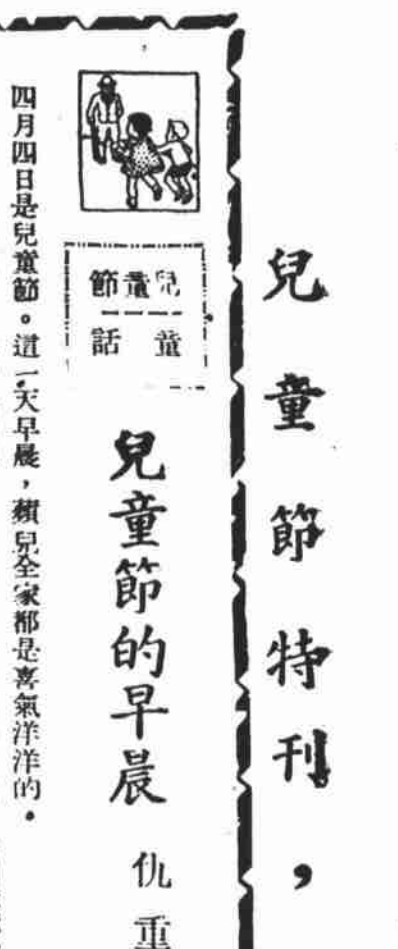 兒童節特刊，
兒童節
童話
兒童節的早晨　仇重
四月四日是兒童節。這一天早晨，蘋兒全家都是喜氣洋洋的。